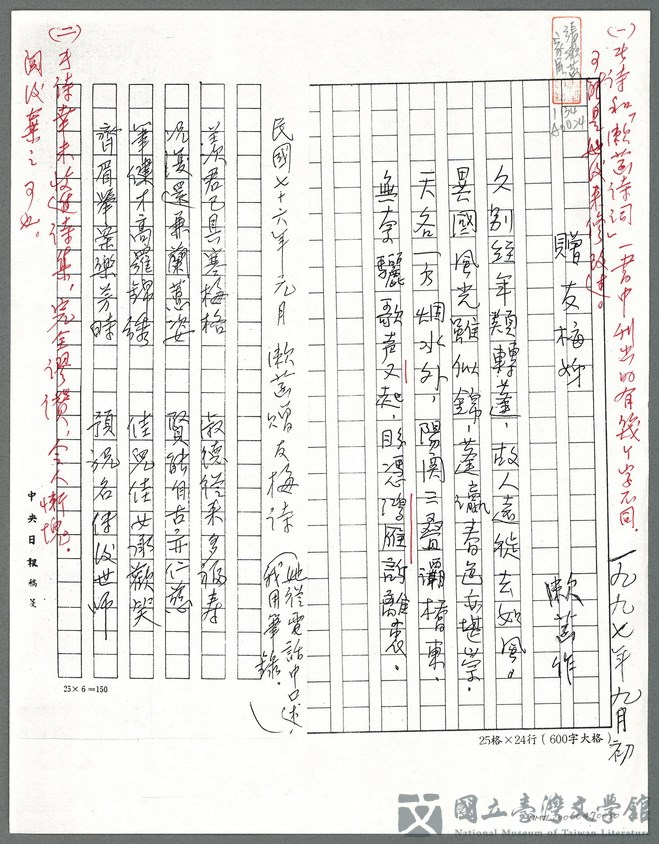 (一)此詩和「漱菡詩詞」一書中刊出的有幾個字不同.
可能是她後來修改過。
一九九七年九月初
贈友梅姊
漱菡作
久別經年類轉蓬,故人遠從去如風。
異國風光雖似錦,蓬瀛春色亦堪崇.
天各一方烟水外,陽關三疊灞橋東.
無奈驪歌声又起,夢憑鴻雁訴離衷.
民國七十六年元月漱菡贈友梅詩(她從電話中口述,我用筆錄.)
羨君已具寒梅格 叔德從來多福寿
况復還兼蘭蕙姿 賢能自古亦仁慈
筆健才高羅錦綉 佳兒佳女承歡笑
齊眉舉案樂芳時 預祝名傳後世師
(二)此詩幸未收進詩集,完全謬讚,令人慚愧.
閱後棄之可也。
中央日報稿箋
25×6=150
25格×24行(600字大格)
國立臺灣文學館
National Museum of Taiwan Literature